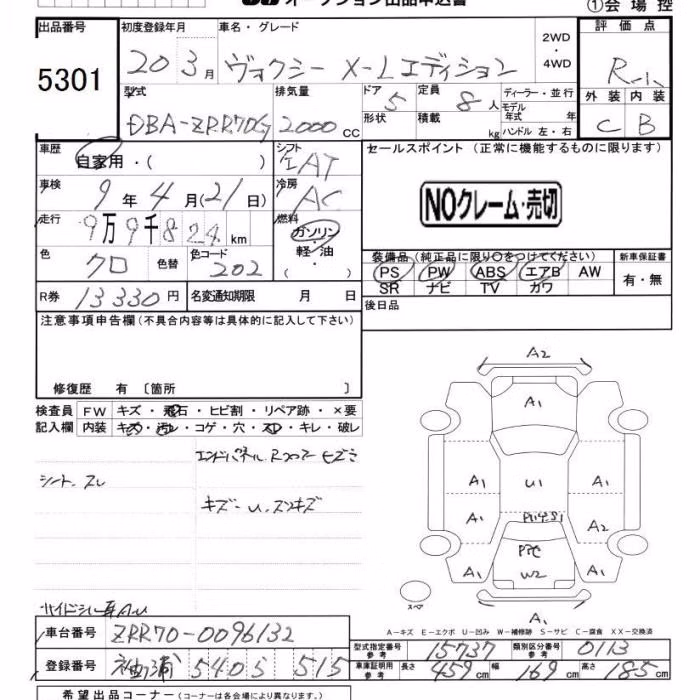 オークション出品申込書
①会場控
出品番号 初度登録年月 車名・グレード 2WD・4WD 評価点
5301 20 3月 ヴォクシー X-Lエディション R-1
型式 排気量 ドア 5 定員 8人 ディーラー・並行 外装 内装
DBA-ZRR70G 2000cc 形状 積載 kg モデル年式 年 ハンドル 左・右 C B
車歴 自家用・( ) シフト AT セールスポイント (正常に機能するものに限ります)
車検 9年4月(21日) 冷房 AC NOクレーム・売切
走行 9万9千824km 燃料 ガソリン・軽・油 ( )
色 クロ 色替 色コード 202
装備品 (純正品に限り○をつけてください) 新車保証書
PS PW ABS エアB AW 有・無
SR ナビ TV カワ
R券 13330円 名変通知期限 月 日 後日品
注意事項申告欄(不具合内容等は具体的に記入して下さい)
修復歴 有 〔箇所 〕
検査員 FW キズ・飛石・ヒビ割・リペア跡・×要
記入欄 内装 キズ・汚レ・コゲ・穴・スレ・キレ・破レ
シート スレ
キズ U. スリキズ
A2
A1
A1 U1 A1
A1 A2
A1 W2 A1
A1
スペア
A−キズ E−エクボ U−凹み W−補修跡 S−サビ C−腐食 XX−交換済
車台番号 ZRR70-0096132
型式指定番号 参考 15737 類別区分番号 参考 0113
登録番号 袖ヶ浦 540 515
車庫証明用 参考 長さ 459cm 幅 169cm 高さ 185cm
希望出品コーナー(コーナーは各会場により異なります。)